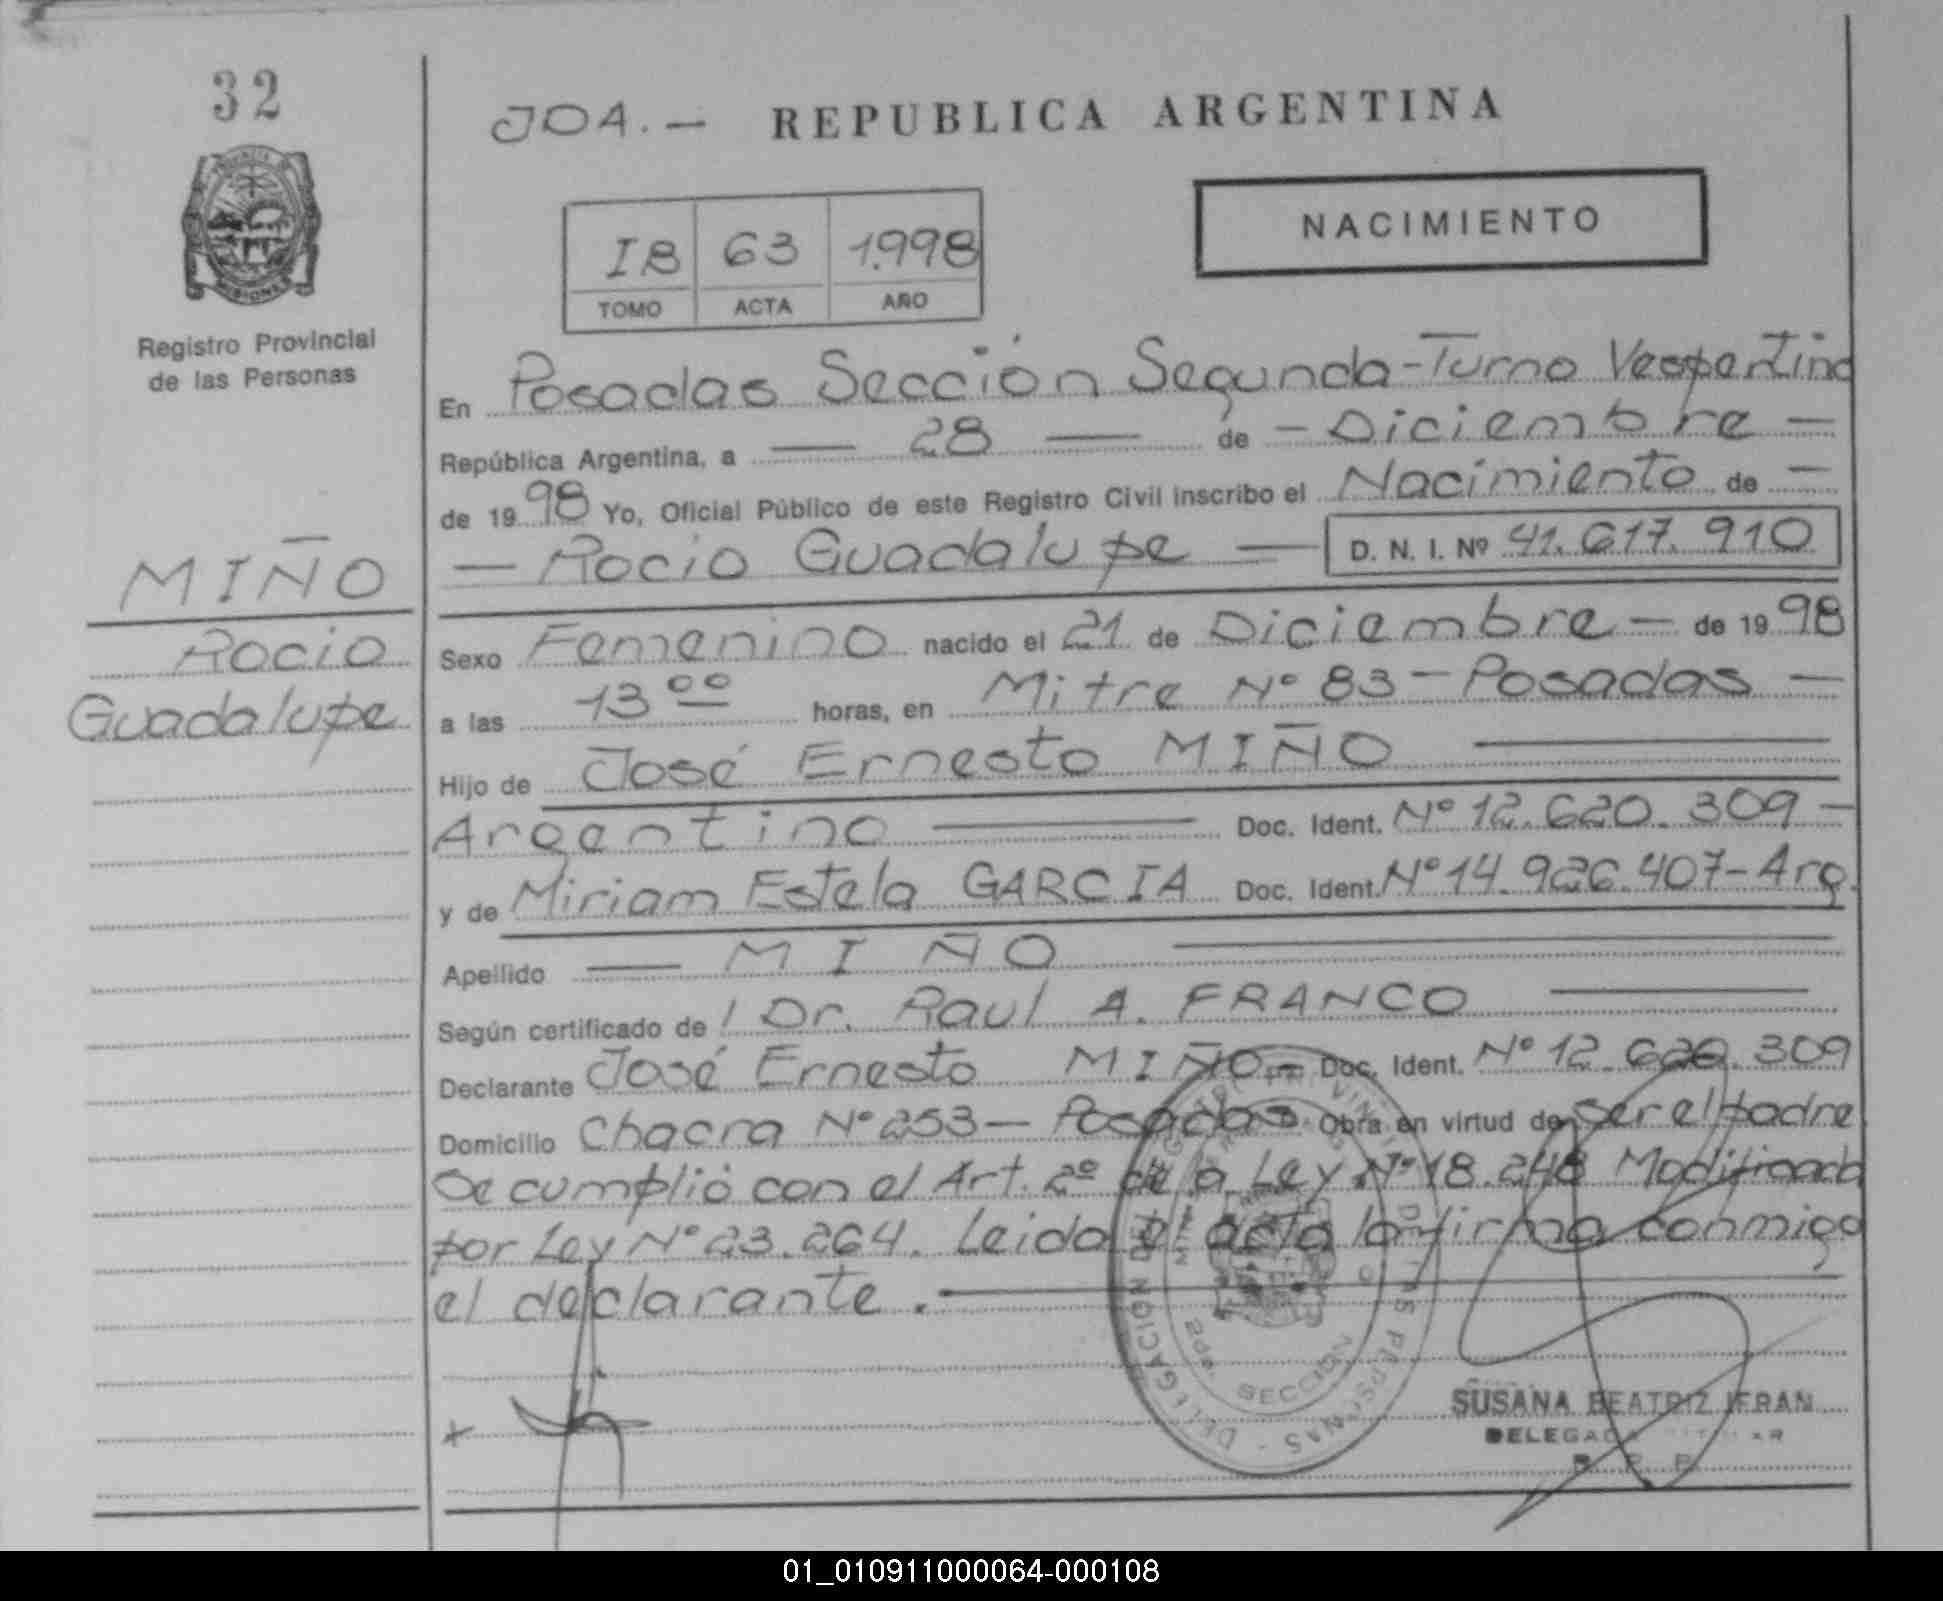 32
JOA.- REPUBLICA ARGENTINA
NACIMIENTO
IB 63 1.998
TOMO ACTA AÑO
Registro Provincial
de las Personas
En Posadas Sección Segunda-Turno Vespertino
República Argentina, a — 28 — de - Diciembre -
de 1998 Yo, Oficial Público de este Registro Civil inscribo el Nacimiento de -
— Rocio Guadalupe — D. N. I. Nº 41.617.910
MIÑO
Rocio
Guadalupe
Sexo Femenino nacido el 21 de Diciembre - de 1998
a las 13 00 horas, en Mitre Nº 83 - Posadas -
Hijo de José Ernesto MIÑO
Argentino — Doc. Ident. Nº 12.620.309 -
y de Miriam Estela GARCIA Doc. Ident. Nº 14.926.407 - Arg.
Apellido — MIÑO
Según certificado de / Dr. Raul A. FRANCO —
Declarante José Ernesto MIÑO - Doc. Ident. Nº 12.620.309
Domicilio Chacra Nº 253 - Posadas Obra en virtud de ser el padre
Se cumplió con el Art. 2º de la Ley Nº 18.248 Modificada
por Ley Nº 23.264. Leida el acta la firma conmigo
el declarante. —
SECCION
SUSANA BEATRIZ IFRAN
DELEGADA
01_010911000064-000108